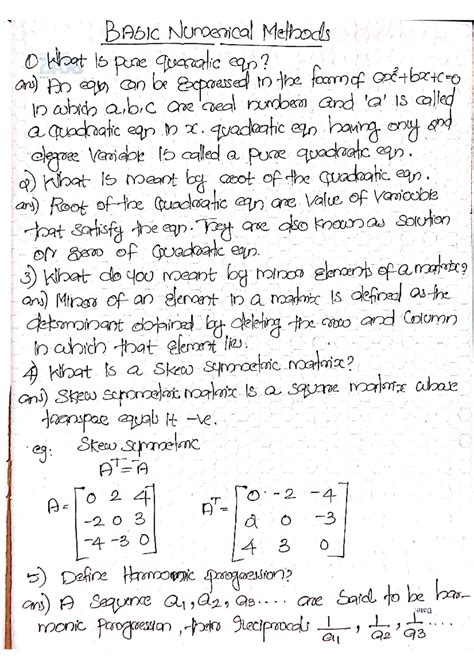 BASIC Numerical Methods
1) What is pure quadratic eqn?
ans) An eqn, can be Expressed in the form of ax²+bx+c=0
in which a, b, c are real numbers and 'a' is called
a quadratic eqn in x. quadratic eqn having only 2nd
degree variable is called a pure quadratic eqn.
2) What is meant by root of the quadratic eqn.
ans) Root of the Quadratic eqn are value of variable
that satisfy the eqn. They are also known as solution
or zero of quadratic eqn.
3) What do you meant by minor elements of a matrix?
ans) Minor of an Element in a matrix is defined as the
determinant obtained by deleting the row and Column
in which that element lies.
4) What is a skew symmetric matrix?
ans) Skew symmetric matrix is a square matrix whose
transpose equals it -ve.
eg: Skew symmetric
Aᵀ = -A
A = [0 2 4 Aᵀ = [0 -2 -4
-2 0 3 2 0 -3
-4 -3 0] 4 3 0]
5) Define Harmonic progression?
ans) A sequence a1, a2, a3.... are said to be har-
monic progression, their reciprocals 1/a1, 1/a2, 1/a3 ....
Date